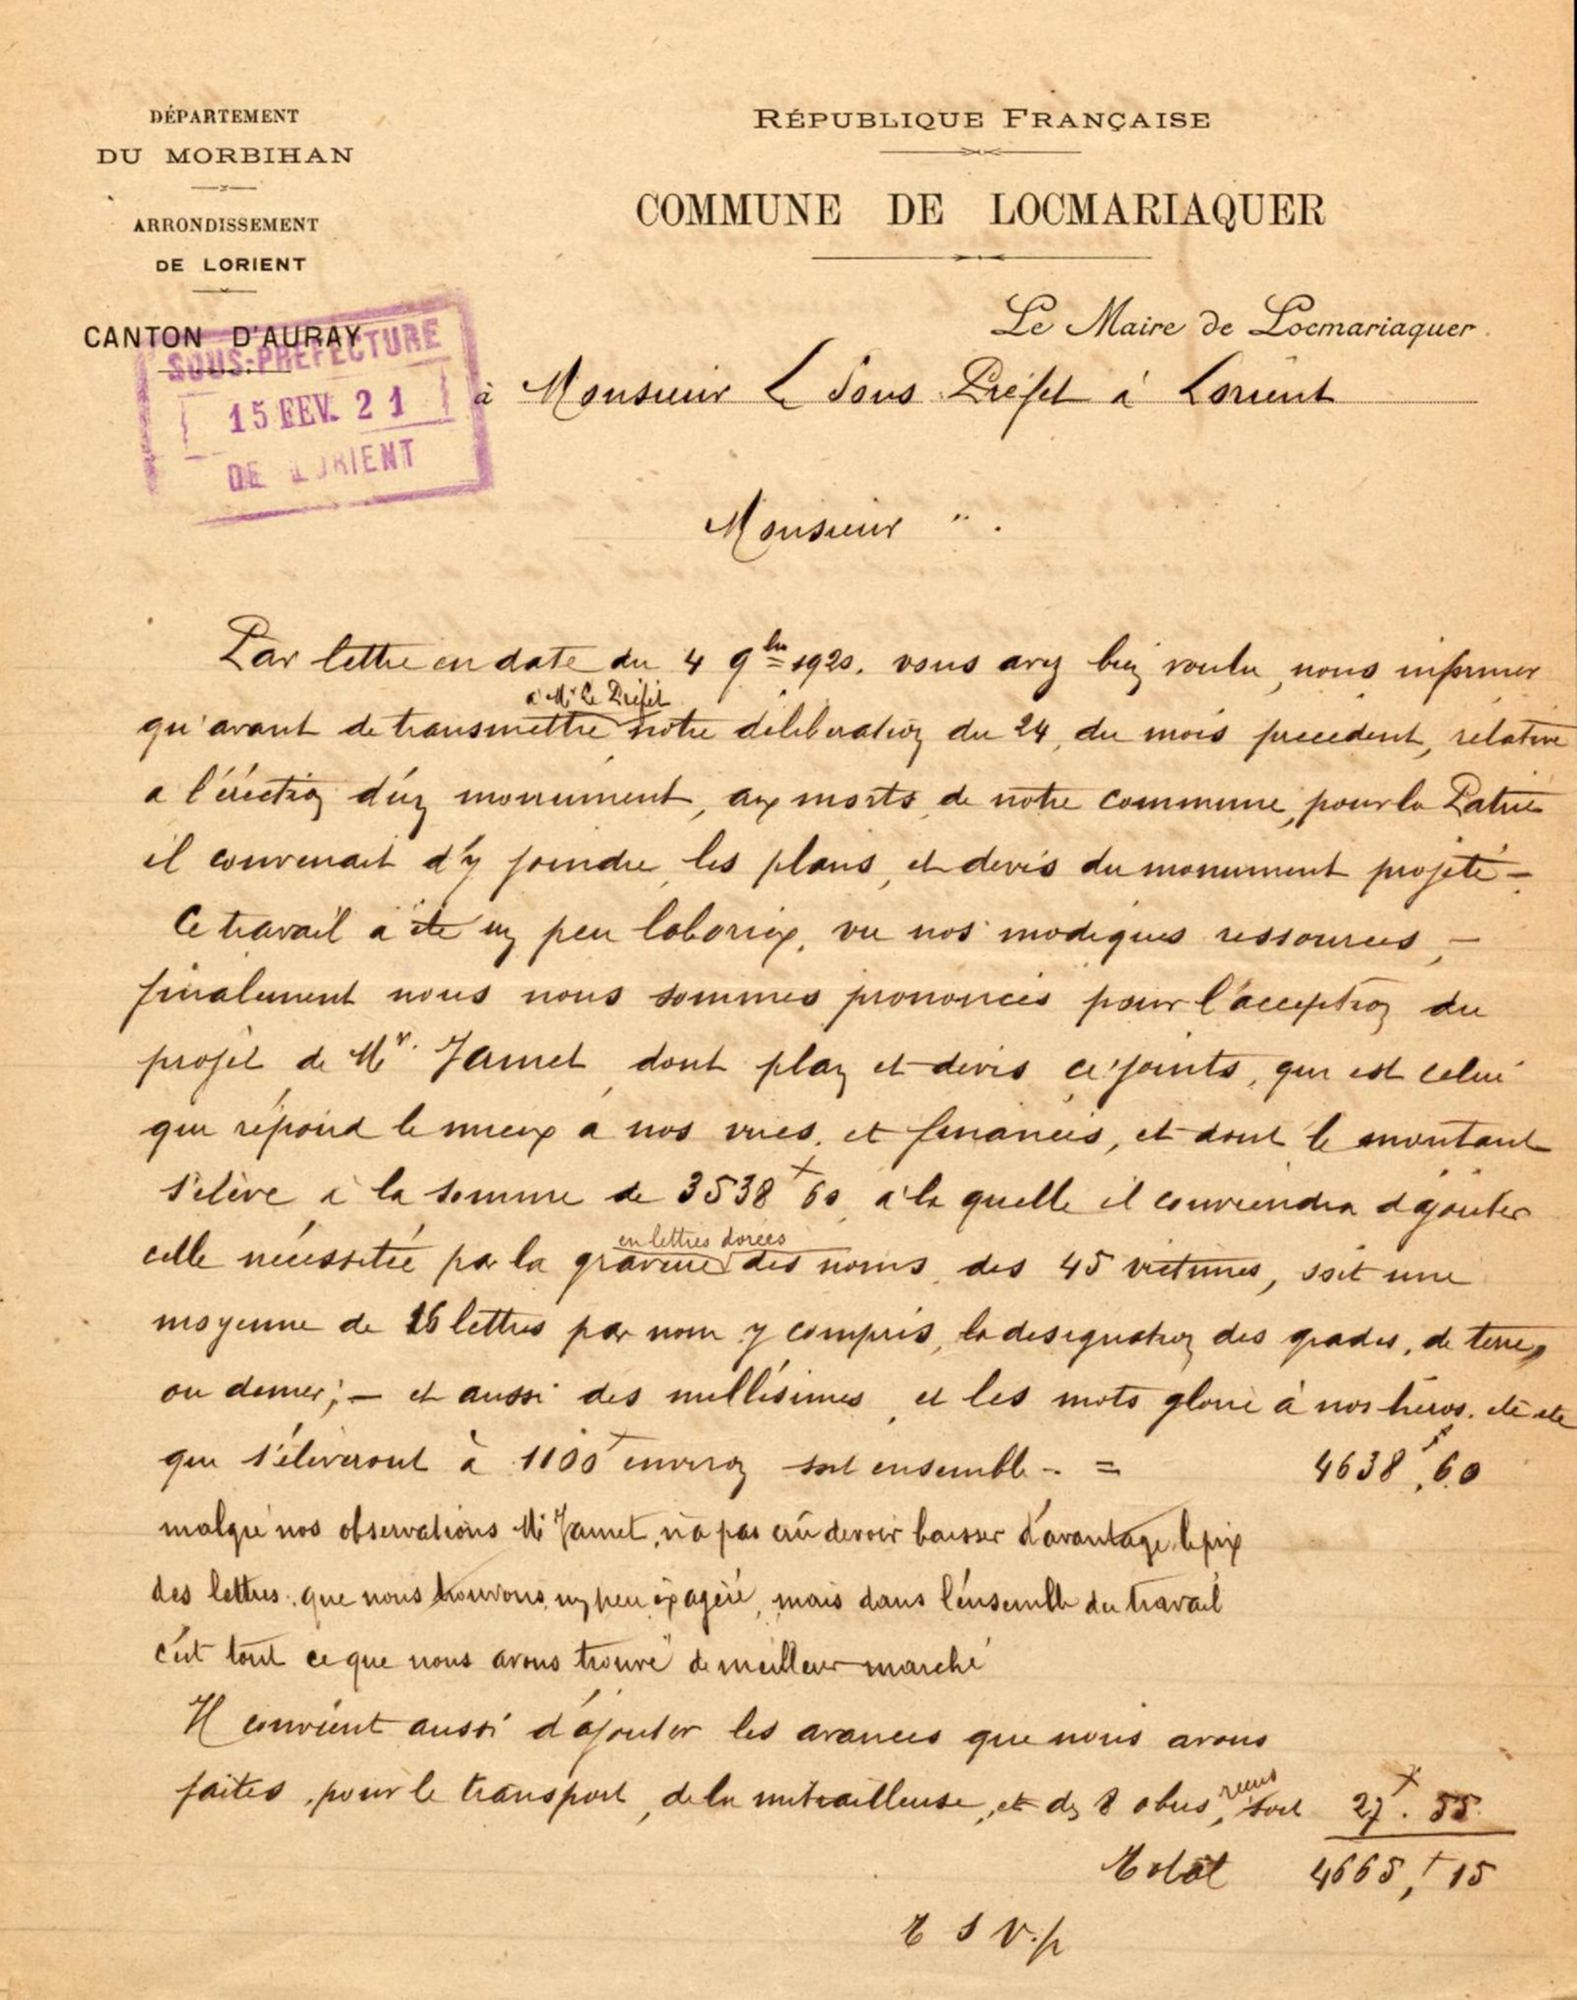 DÉPARTEMENT
DU MORBIHAN
ARRONDISSEMENT
DE LORIENT
CANTON D'AURAY
SOUS-PRÉFECTURE
15 FEV. 21
DE LORIENT
RÉPUBLIQUE FRANÇAISE
COMMUNE DE LOCMARIAQUER
Le Maire de Locmariaquer
à Monsieur Le Sous Préfet à Lorient
Monsieur " .
Par lettre en date du 4 9bre 1920. vous avez bien voulu, nous informer
à Mr Le Préfet
qu'avant de transmettre notre délibération du 24, du mois précédent, relative
a l'érection d'un monument, aux morts, de notre commune, pour la Patrie
il convenait d'y joindre, les plans, et devis du monument projeté –
Ce travail a été un peu laborieux, vu nos modiques ressources, –
finalement nous nous sommes prononcés pour l'acception du
projet de Mr. Jamet dont plan et devis ci'joints, qui est celui
qui répond le mieux à nos vues, et finances, et dont le montant
s'élève à la somme de 3538 f 60, à la quelle il conviendra d'ajouter
en lettres dorées
celle nécessitée par la gravure des noms, des 45 victimes, soit une
moyenne de 16 lettres par nom y compris, la designation des grades, de terre,
ou de mer; – et aussi des millésimes, et les mots gloire à nos héros. etc etc
qui s'élèveront à 1100 f environ soit ensemble - = 4638 f, 60
malgré nos observations Mr Jamet, n'a pas crû devoir baisser d'avantage, le prix
des lettres, que nous trouvons, un peu éxagéré, mais dans l'ensemble du travail
c'est tout ce que nous avons trouvé de meilleur marché
Il convient aussi d'ajouter les avances que nous avons
faites, pour le transport, de la mitrailleuse, et des 8 obus, reçus soit 27 f. 55
Total 4665, f 15
T S V. p